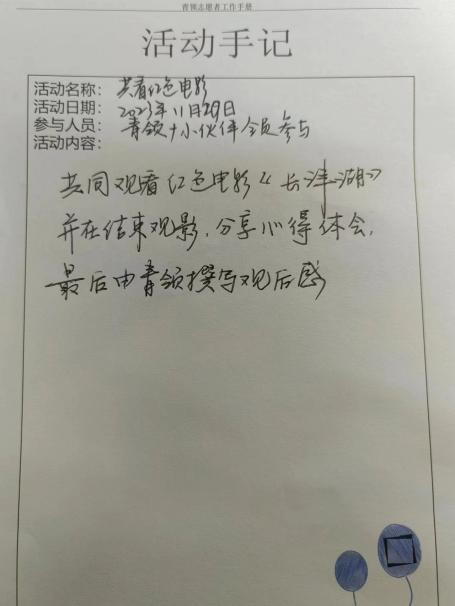 青领志愿者工作手册
活动手记
活动名称: 共看红色电影
活动日期: 2023年11月29日
参与人员: 青领+小伙伴全员参与
活动内容:
共同观看红色电影《长津湖》
并在结束观影,分享心得体会,
最后由青领撰写观后感